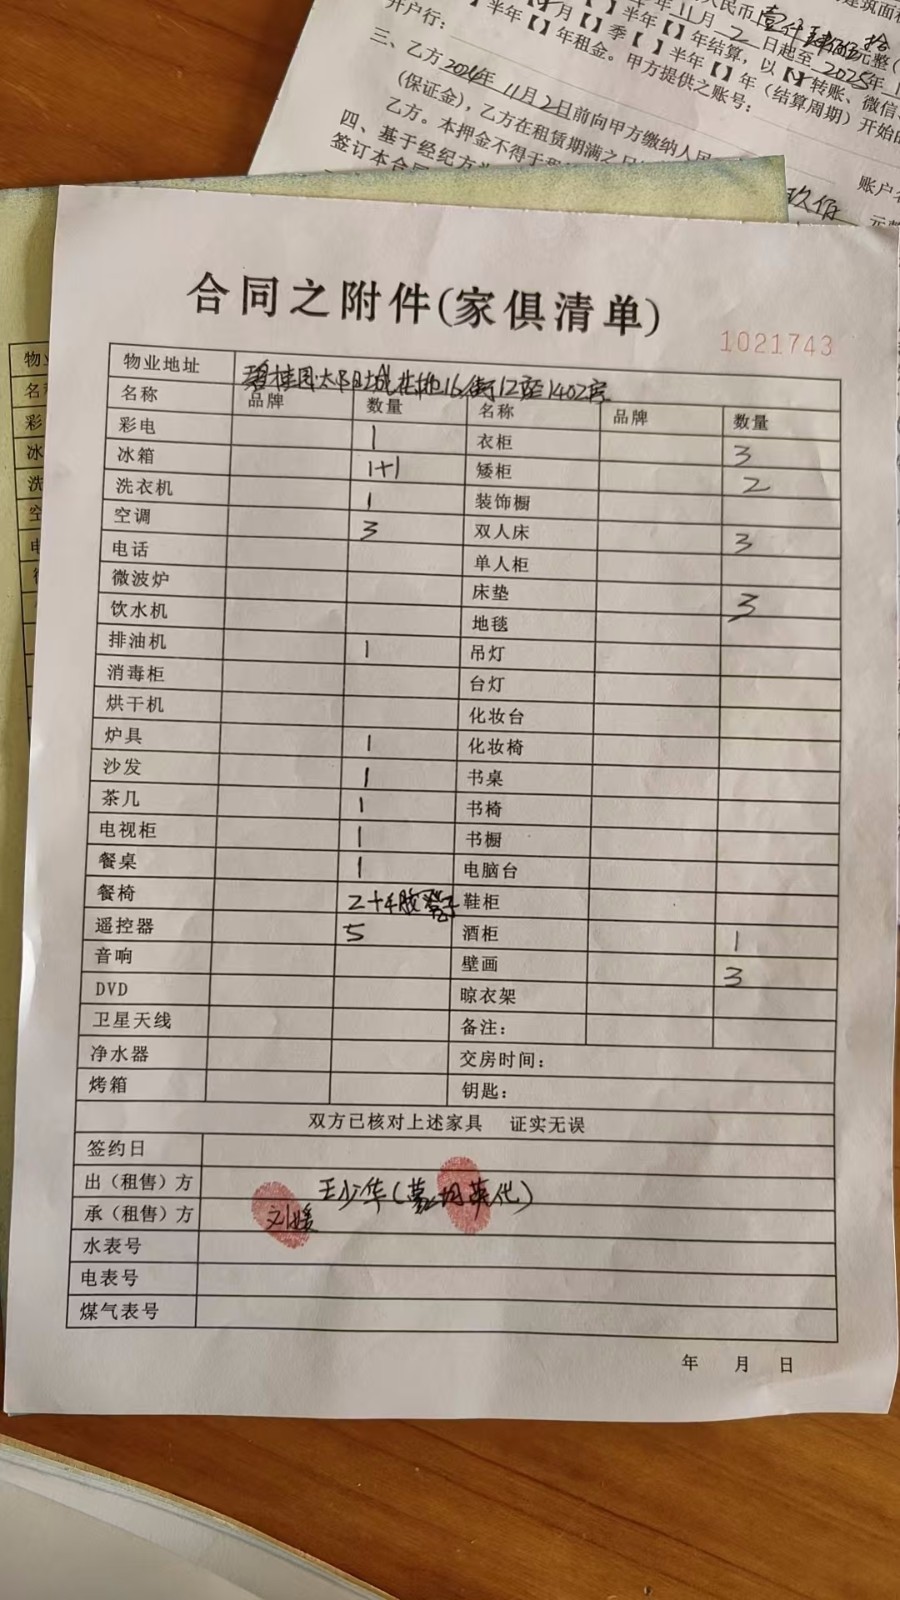 人民币壹仟
年11月2日起至2025年
半年【】月【】季【】半年【】年结算，以【】转账、微信
开户行：
年租金。甲方提供之账号：
年（结算周期）开始
三、乙方2024年11月2日前向甲方缴纳人民
(保证金)，乙方在租赁期满之日
账户名
乙方。本押金不得于
玖佰 元
四、基于经纪方为
签订本合同
合同之附件(家俱清单)
1021743
物业地址 碧桂园太阳城花地16街12座1402房
名称 品牌 数量 名称 品牌 数量
彩电 1 衣柜 3
冰箱 1+1 矮柜 2
洗衣机 1 装饰橱
空调 3 双人床 3
电话 单人柜
微波炉 床垫 3
饮水机 地毯
排油机 1 吊灯
消毒柜 台灯
烘干机 化妆台
炉具 1 化妆椅
沙发 1 书桌
茶几 1 书椅
电视柜 1 书橱
餐桌 1 电脑台
餐椅 2+4胶凳子 鞋柜
遥控器 5 酒柜 1
音响 壁画 3
DVD 晾衣架
卫星天线 备注：
净水器 交房时间：
烤箱 钥匙：
双方已核对上述家具 证实无误
签约日
出（租售）方 王少华(
英代)
承（租售）方 刘媛
水表号
电表号
煤气表号
年 月 日